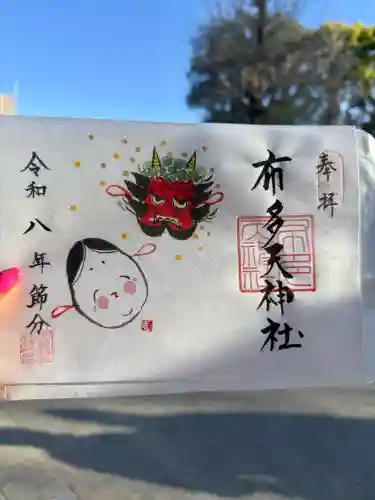 奉拝
布多天神社
令和八年節分